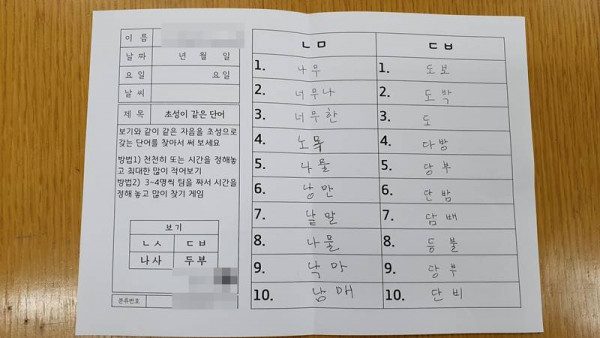 이 름
날 짜 년 월 일
요 일 요일
날 씨
제 목 초성이 같은 단어
보기와 같이 같은 자음을 초성으로
갖는 단어를 찾아서 써 보세요
방법1) 천천히 또는 시간을 정해놓
고 최대한 많이 적어보기
방법2) 3~4명씩 팀을 짜서 시간을
정해 놓고 많이 찾기 게임
보기
ㄴㅅ ㄷㅂ
나사 두부
분류번호
ㄴㅁ ㄷㅂ
1. 나무 1. 도보
2. 너무나 2. 도박
3. 너무한 3. 도
4. 노목 4. 다방
5. 나물 5. 당부
6. 낭만 6. 단밤
7. 낱말 7. 담배
8. 나물 8. 등불
9. 낙마 9. 당부
10. 남매 10. 단비